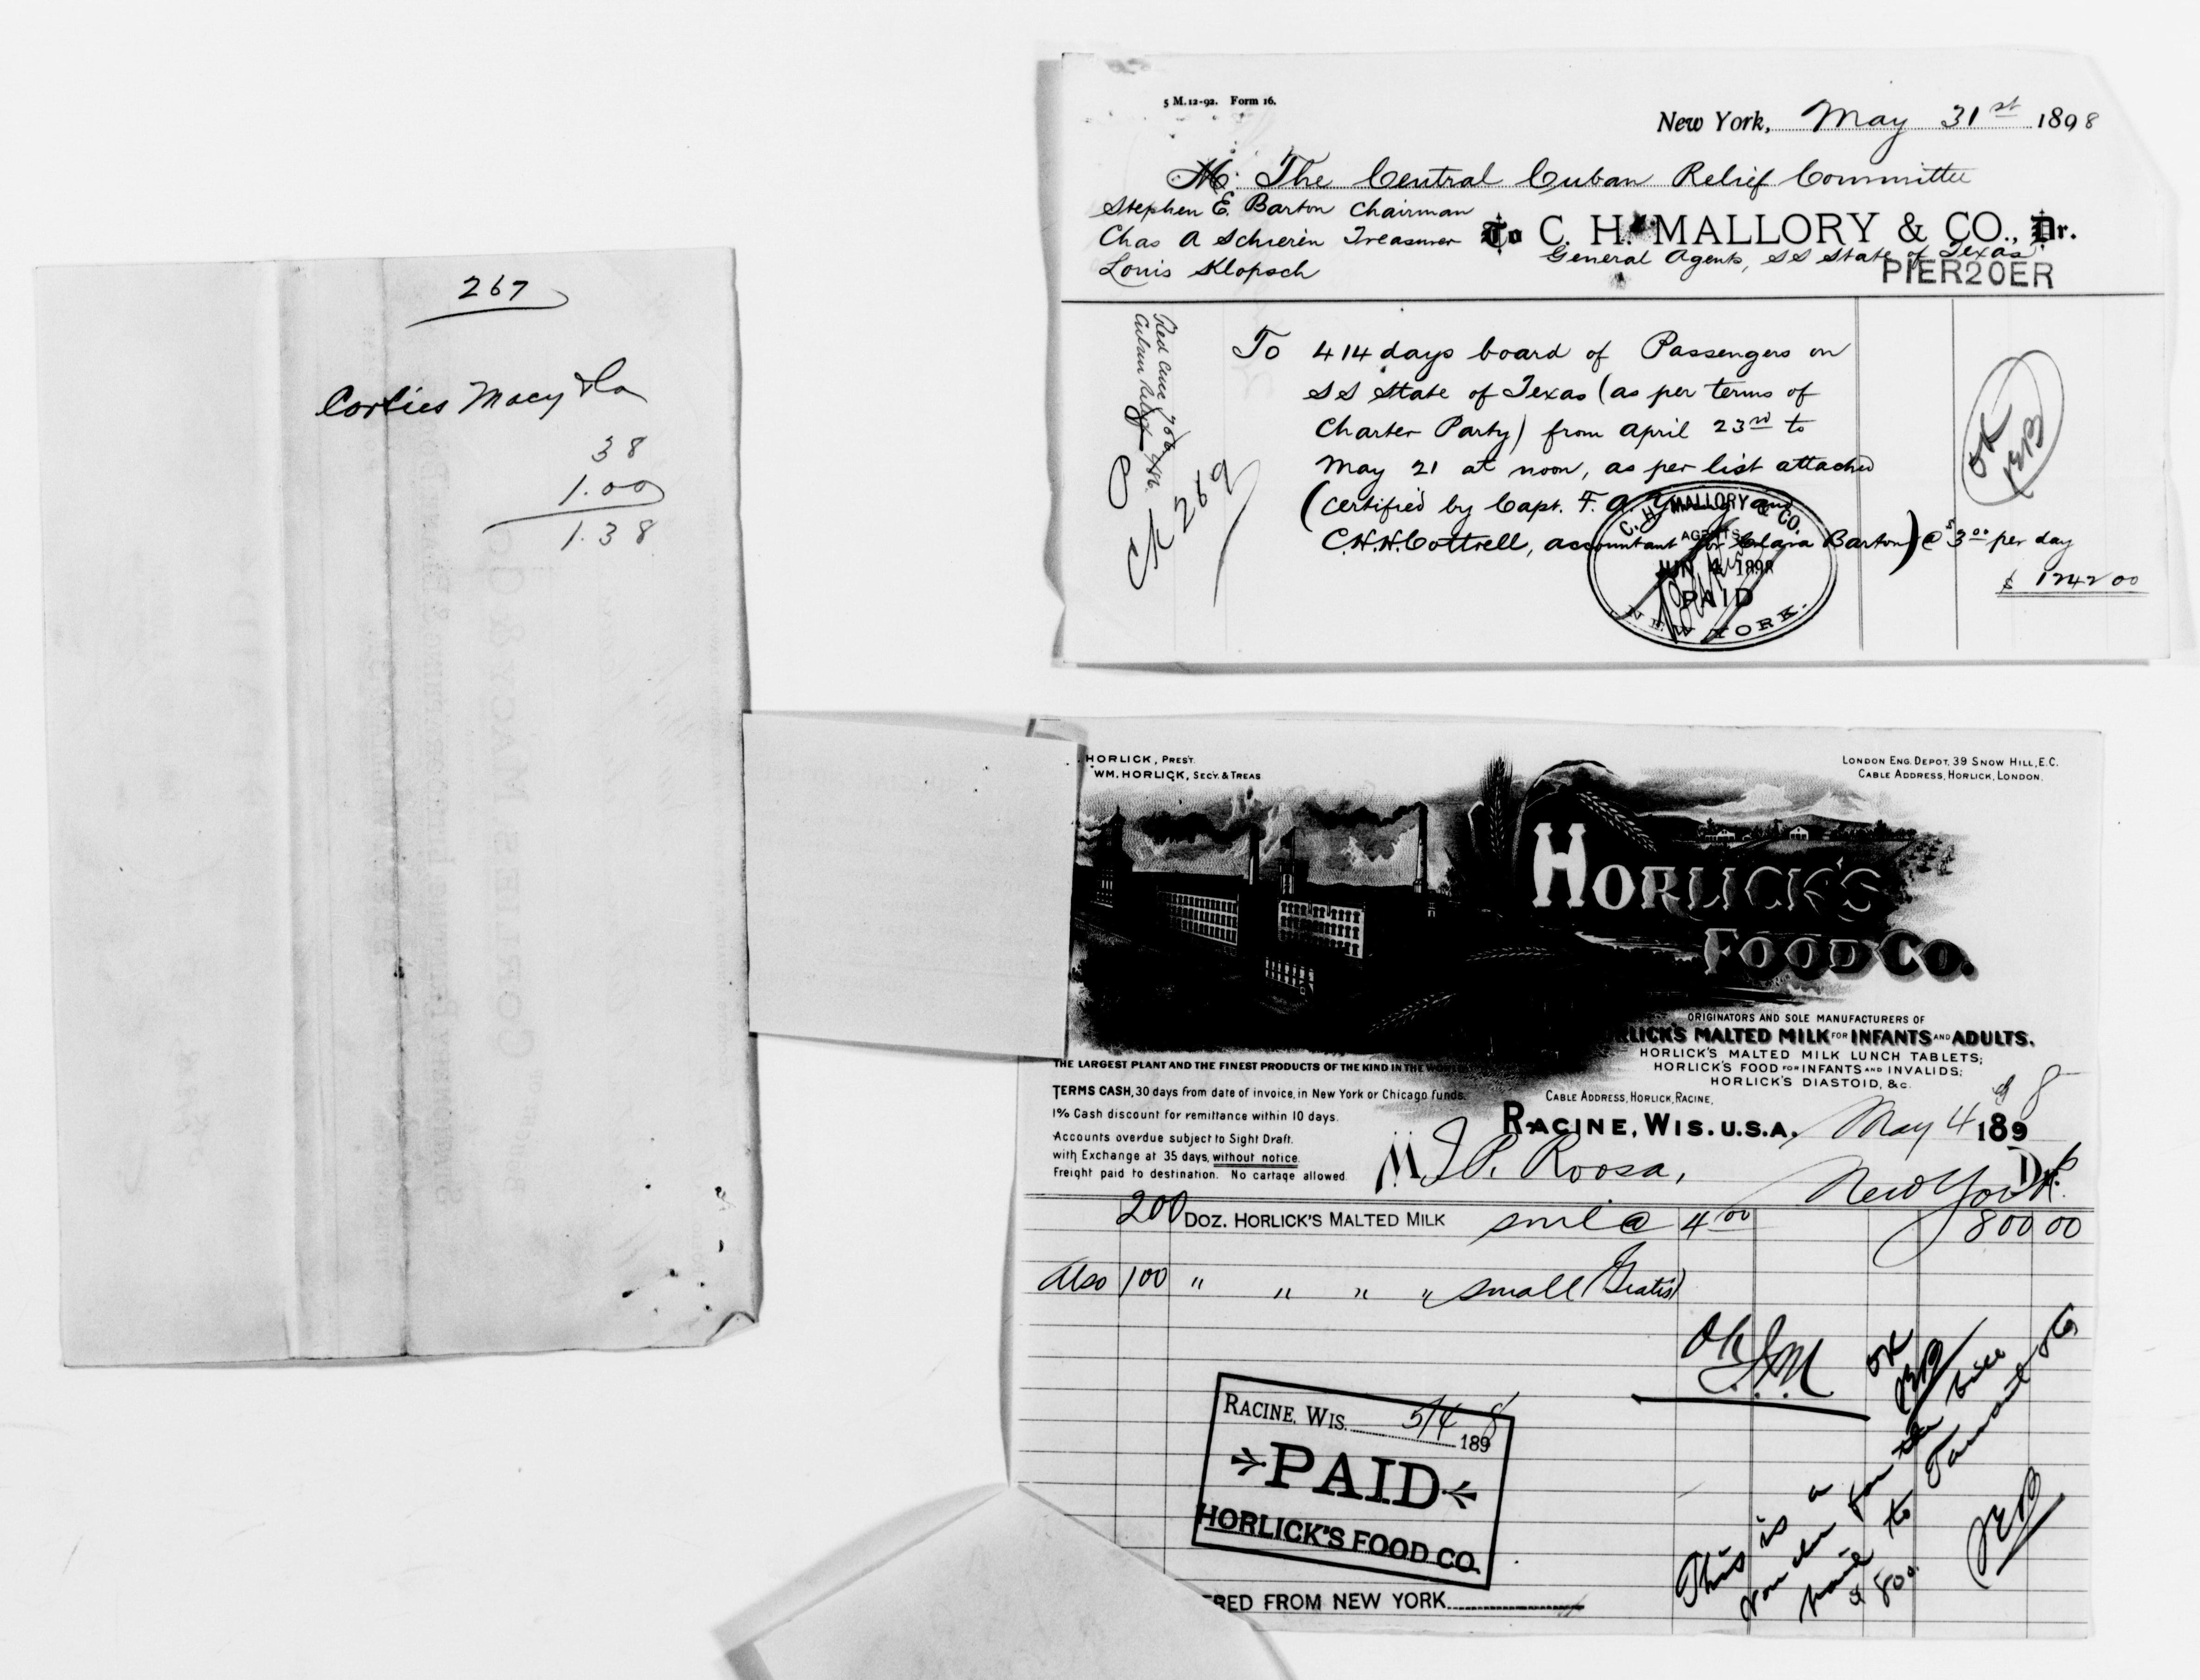 267
Corlies Macy & Co
38
1.00
1.38
5 M. 12-92. Form 16.
New York, May 31st 1898
M. The Central Cuban Relief Committee
Stephen E. Barton Chairman
Chas A Schieren Treasurer
Louis Klopsch
To C. H. MALLORY & CO., Dr.
General Agents, SS State of Texas
PIER 20 ER
To 414 days board of Passengers on
SS State of Texas (as per terms of
Charter Party) from April 23rd to
May 21 at noon, as per list attached
(certified by Capt. F. A.
C.H.H. Cottrell, accountant for Clara Barton) @ $3.00 per day
$ 1242 00
OK
Ck 269
C. H. MALLORY & CO.
AGENTS
JUN 4 1898
PAID
NEW YORK.
HORLICK, PREST.
WM. HORLICK, SECY. & TREAS
LONDON ENG. DEPOT, 39 SNOW HILL, E.C.
CABLE ADDRESS, HORLICK, LONDON.
HORLICK'S
FOOD CO.
ORIGINATORS AND SOLE MANUFACTURERS OF
LICK'S MALTED MILK FOR INFANTS AND ADULTS.
HORLICK'S MALTED MILK LUNCH TABLETS;
HORLICK'S FOOD FOR INFANTS AND INVALIDS;
HORLICK'S DIASTOID, &c.
THE LARGEST PLANT AND THE FINEST PRODUCTS OF THE KIND IN THE WORLD
TERMS CASH, 30 days from date of invoice, in New York or Chicago funds.
1% Cash discount for remittance within 10 days.
Accounts overdue subject to Sight Draft.
with Exchange at 35 days, without notice.
Freight paid to destination. No cartage allowed.
CABLE ADDRESS, HORLICK, RACINE,
RACINE, WIS. U.S.A. May 4 1898
M J P. Roosa, New York. Dr.
200 DOZ. HORLICK'S MALTED MILK sml @ 4 00 800 00
Also 100 " " " " small (Gratis)
Ok
OK
RACINE, WIS. 5/4 1898
PAID
HORLICK'S FOOD CO.
This is a
voucher for the bill
paid to Tarrant & Co
$ 800.
RED FROM NEW YORK